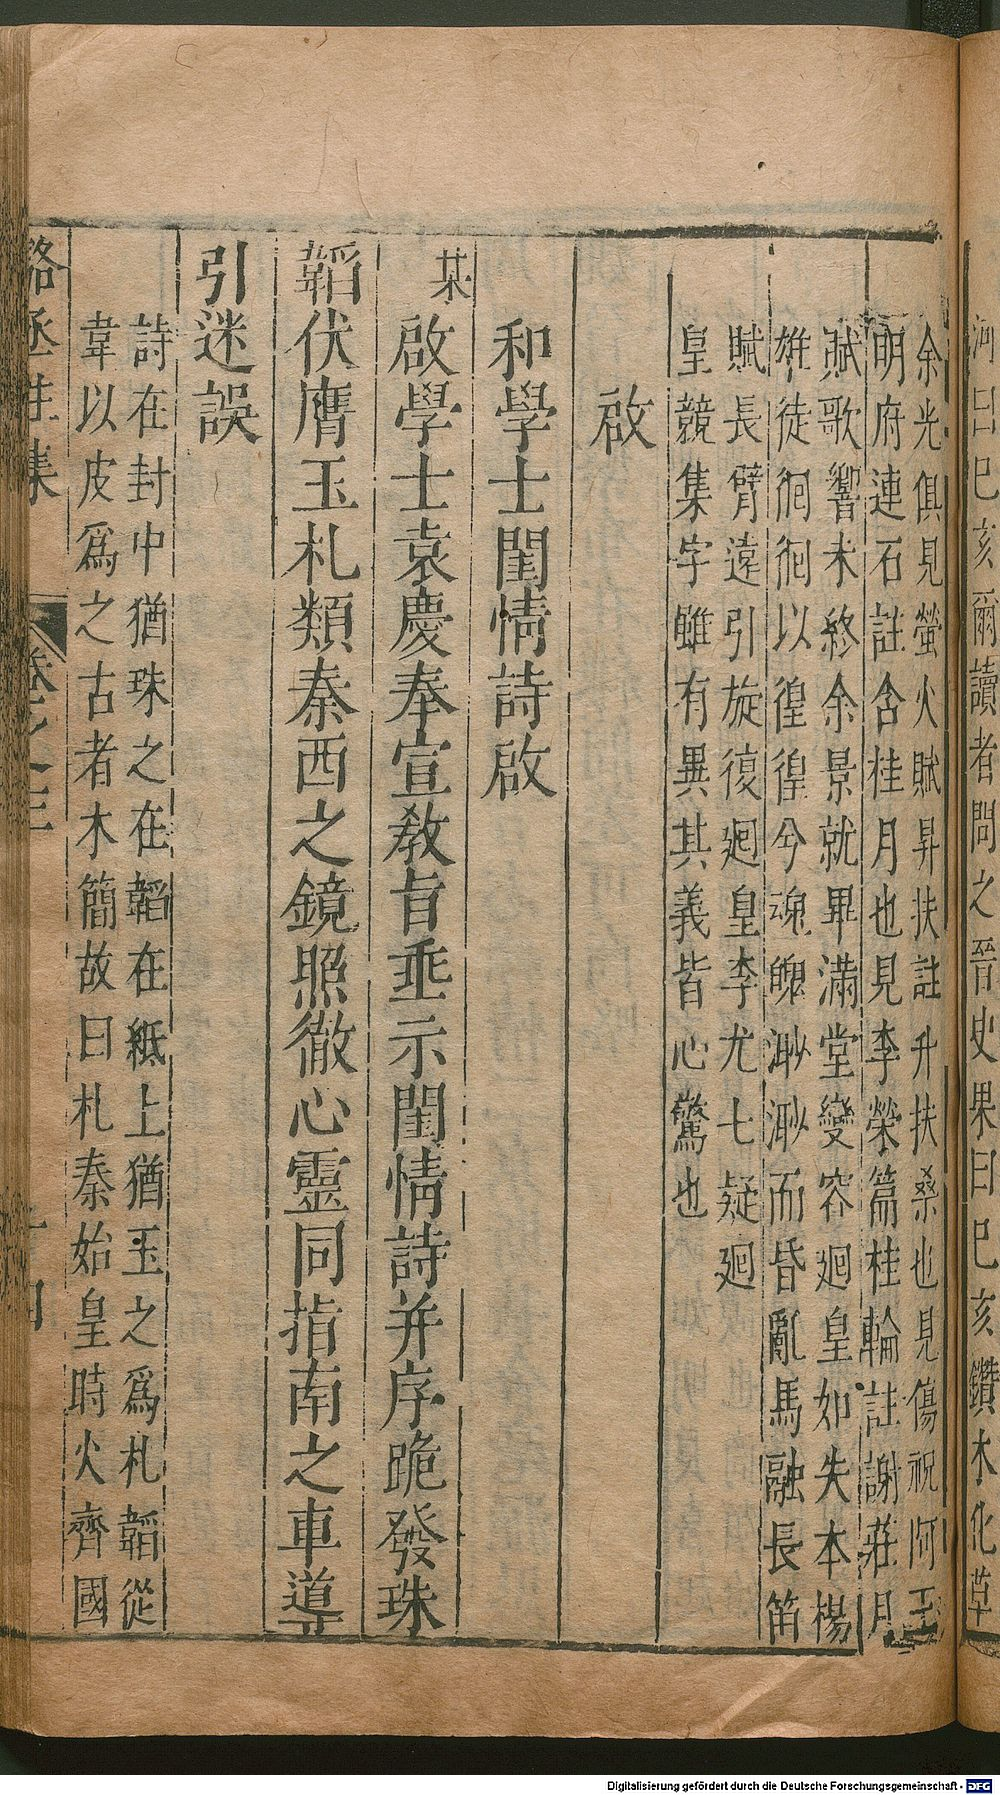 河曰巳亥爾讀者問之晉史果曰巳亥鑽木化草
余光俱見螢火賦昇扶註升扶桑也見傷祝阿王
明府連石註含桂月也見李榮篇桂輪註謝莊月
賦歌響未終余景就畢滿堂變容迴皇如失本楊
雄徒徊徊以徨徨兮魂魄渺渺而昏亂馬融長笛
賦長臂遠引旋復迴皇李尤七疑迴
皇競集字雖有異其義皆心驚也
啟
和學士閨情詩啟
某啟學士袁慶奉宣教旨垂示閨情詩并序跪發珠
韜伏膺玉札類秦西之鏡照徹心靈同指南之車導
引迷誤
詩在封中猶珠之在韜在紙上猶玉之爲札韜從
韋以皮爲之古者木簡故曰札秦始皇時火齊國
駱丞
集
卷之三
Digitalisierung gefördert durch die Deutsche Forschungsgemeinschaft - DFG